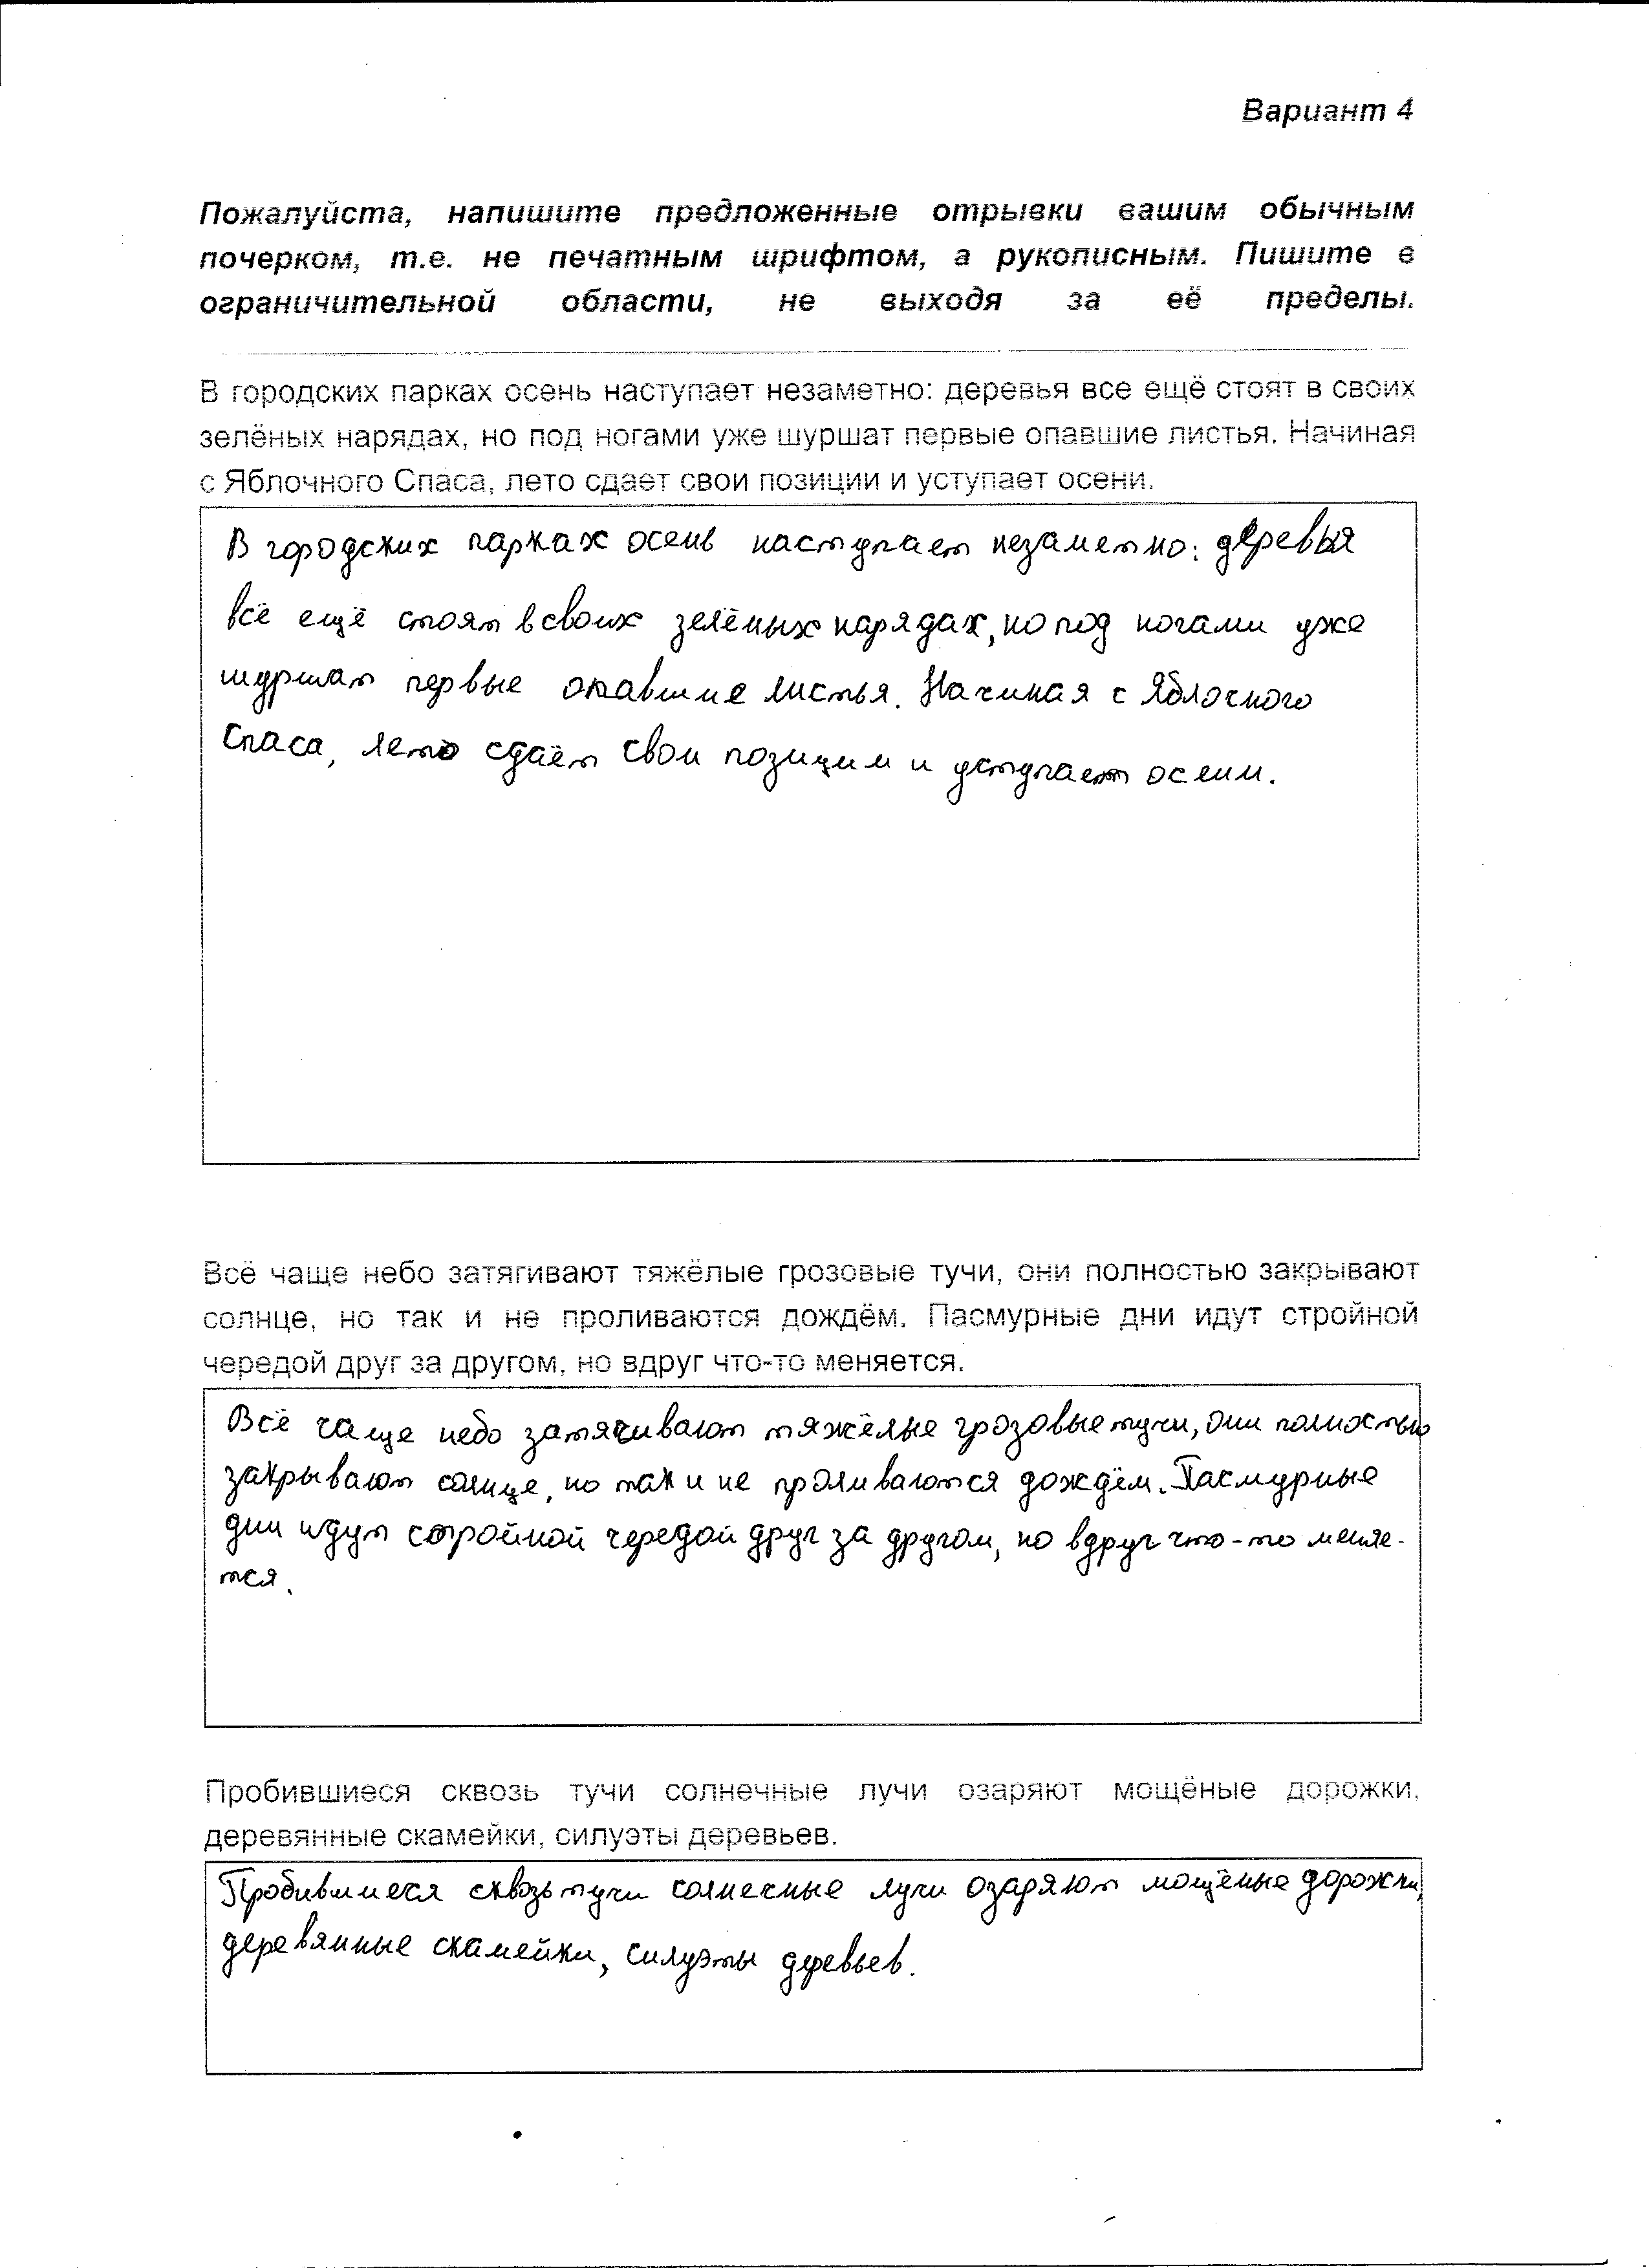 Вариант 4
Пожалуйста, напишите предложенные отрывки вашим обычным
почерком, т.е. не печатным шрифтом, а рукописным. Пишите в
ограничительной области, не выходя за её пределы.
В городских парках осень наступает незаметно: деревья все ещё стоят в своих
зелёных нарядах, но под ногами уже шуршат первые опавшие листья. Начиная
с Яблочного Спаса, лето сдает свои позиции и уступает осени.
В городских парках осень наступает незаметно: деревья
всё ещё стоят в своих зелёных нарядах, но под ногами уже
шуршат первые опавшие листья. Начиная с Яблочного
Спаса, лето сдаёт свои позиции и уступает осени.
Всё чаще небо затягивают тяжёлые грозовые тучи, они полностью закрывают
солнце, но так и не проливаются дождём. Пасмурные дни идут стройной
чередой друг за другом, но вдруг что-то меняется.
Всё чаще небо затягивают тяжёлые грозовые тучи, они полностью
закрывают солнце, но так и не проливаются дождём. Пасмурные
дни идут стройной чередой друг за другом, но вдруг что-то меняе-
тся.
Пробившиеся сквозь тучи солнечные лучи озаряют мощёные дорожки,
деревянные скамейки, силуэты деревьев.
Пробившиеся сквозь тучи солнечные лучи озаряют мощёные дорожки,
деревянные скамейки, силуэты деревьев.